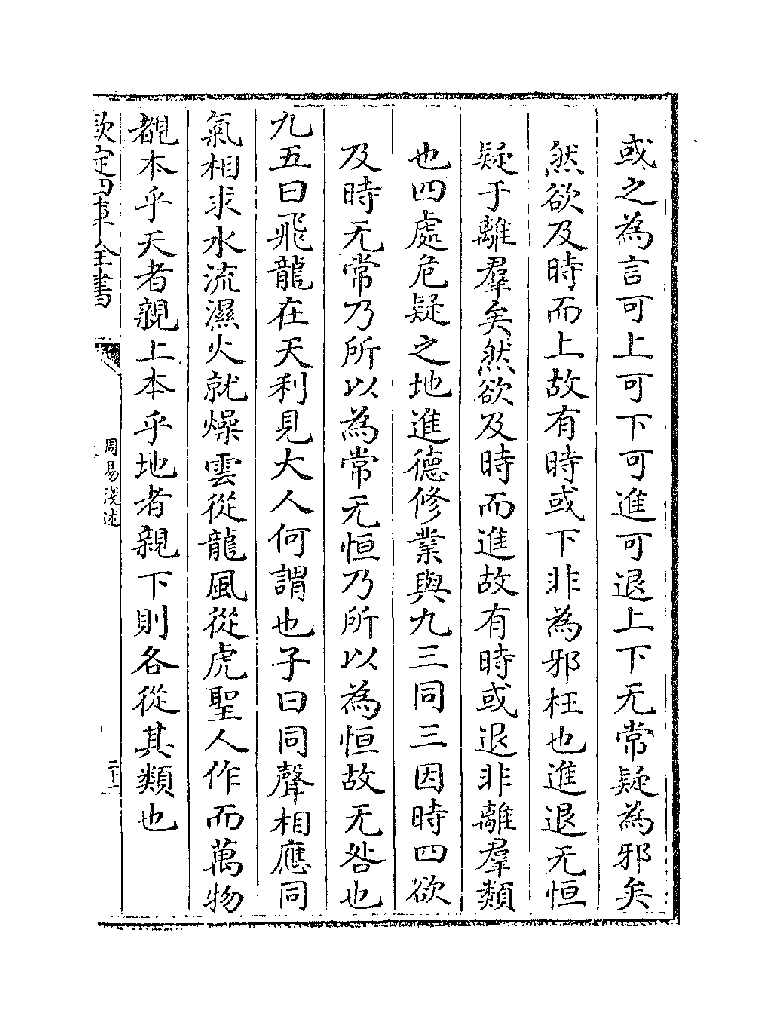 或之為言可上可下可進可退上下无常疑為邪矣
然欲及時而上故有時或下非為邪枉也進退无恒
疑于離羣矣然欲及時而進故有時或退非離羣類
也四處危疑之地進德修業與九三同三因時四欲
及時无常乃所以為常无恒乃所以為恒故无咎也
九五曰飛龍在天利見大人何謂也子曰同聲相應同
氣相求水流濕火就燥雲從龍風從虎聖人作而萬物
覩本乎天者親上本乎地者親下則各從其類也
欽定四庫全書
周易淺述